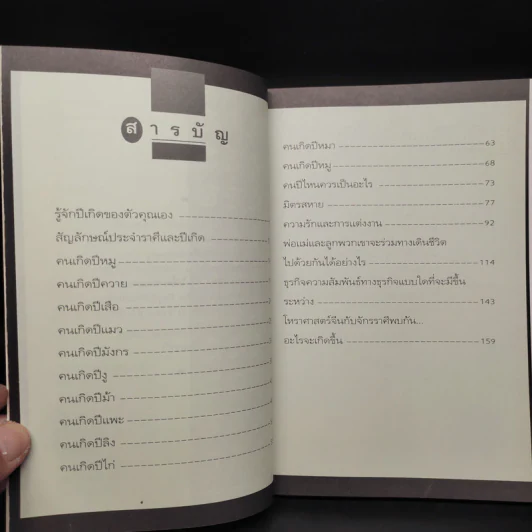 สารบัญ
รู้จักปีเกิดของตัวคุณเอง
สัญลักษณ์ประจำราศีและปีเกิด
คนเกิดปีหนู
คนเกิดปีควาย
คนเกิดปีเสือ
คนเกิดปีแมว
คนเกิดปีมังกร
คนเกิดปีงู
คนเกิดปีม้า
คนเกิดปีแพะ
คนเกิดปีลิง
คนเกิดปีไก่
คนเกิดปีหมา 63
คนเกิดปีหมู 68
คนปีไหนควรเป็นอะไร 73
มิตรสหาย 77
ความรักและการแต่งงาน 92
พ่อแม่และลูกพวกเขาจะร่วมทางเดินชีวิต
ไปด้วยกันได้อย่างไร 114
ธุรกิจความสัมพันธ์ทางธุรกิจแบบใดที่จะมีขึ้น
ระหว่าง 143
โหราศาสตร์จีนกับจักรราศีพบกัน...
อะไรจะเกิดขึ้น 159